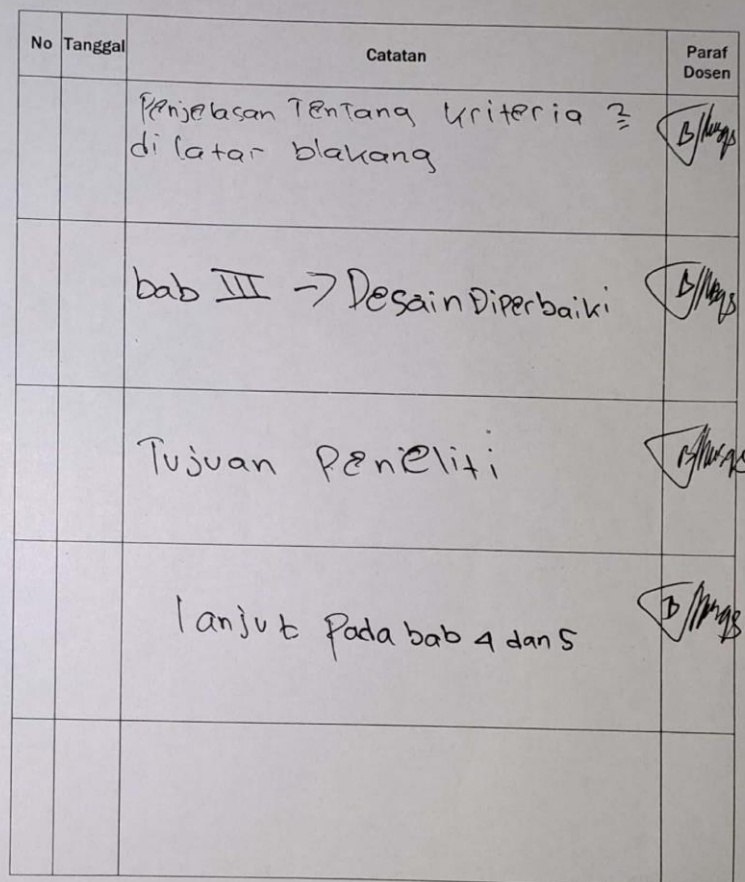 No Tanggal Catatan Paraf Dosen
Penjelasan Tentang kriteria ?
di latar blakang
bab III -> Desain Diperbaiki
Tujuan Peneliti
lanjut Pada bab 4 dan 5